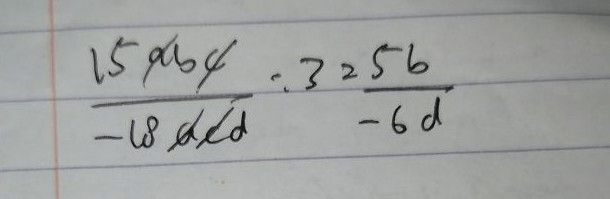 15abc
-18acd
:3=
5b
-6d